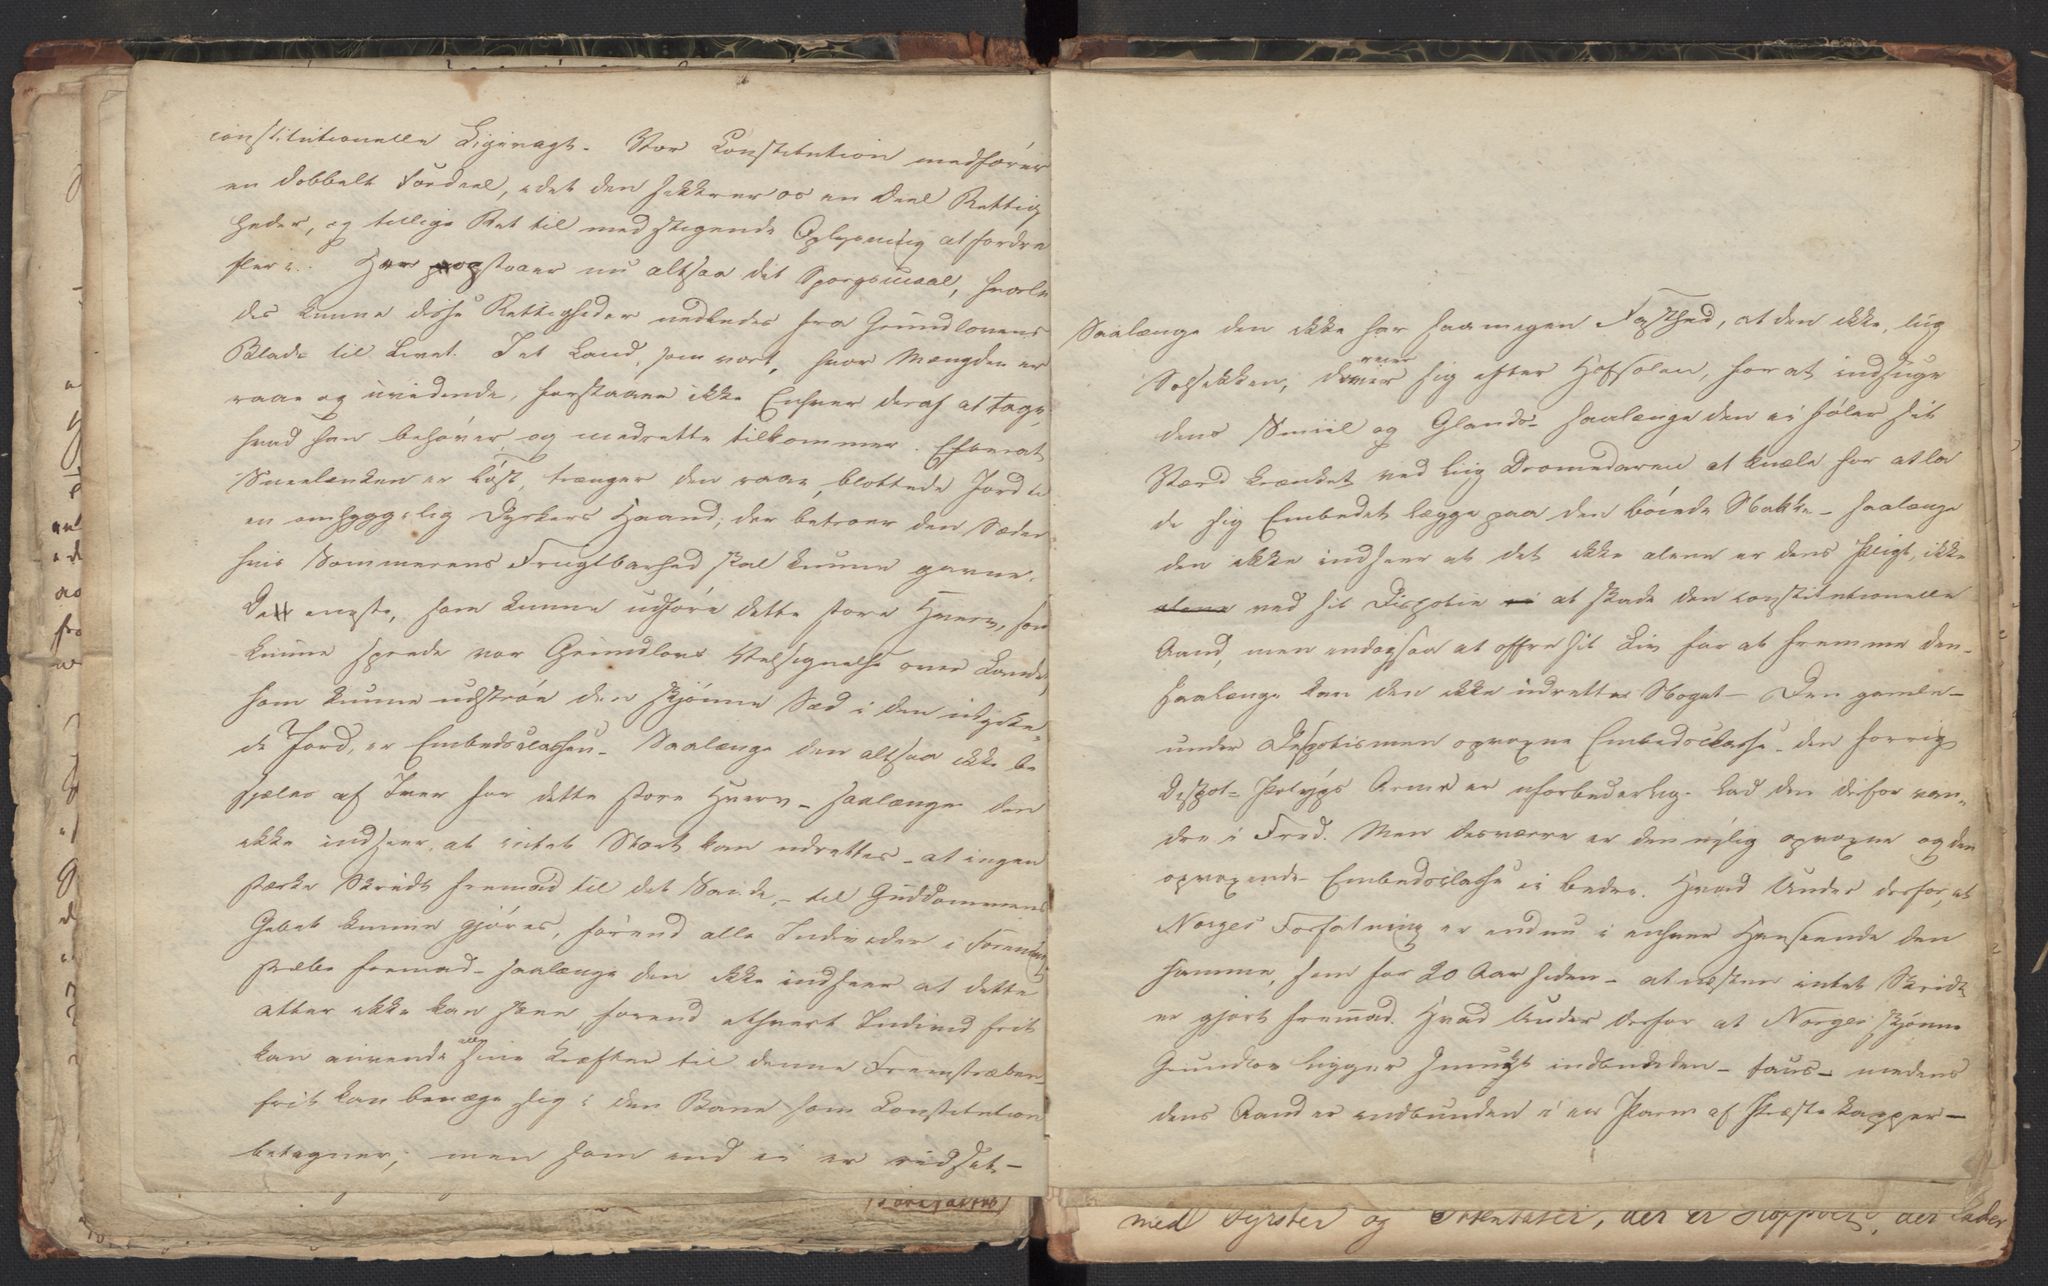 constitutionelle Ligevægt. Vor Constitution medfører
en dobbelt Fordeel, idet den sikkrer os en Deel Rettig
heder, og tillige Ret til med stigende Oplysning at fordre
flere. Her opstaaer nu altsaa det Spørgsmaal, hvorle
des kunne disse Rettigheder nedledes fra Grundlovens
Blade til Livet. I et Land, som vort, hvor Mængden er
raae og uvidende, forstaaer ikke Enhver deraf at tage,
hvad han behøver og medrette tilkommer. Efterat
Sneelænken er løst, trænger den raae, blottede Jord til
en omhyggelig Dyrkers Haand, der betroer den Sæden
hvis Sommerens Frugtbarhed skal kunne gavne.
Det eneste, som kunne udføre dette store Hverv, som
kunne sprede vor Grundlovs Velsignelse over Landet,
som kunne udstrøe den skjønne Sæd i den udyrke-
de Jord, er Embedsclassen. Saalænge den altsaa ikke be
sjæles af Iver for dette store Hverv – saalænge den
ikke indseer, at intet Stort kan udrettes – at ingen
stærke Skridt fremad til det Sande, – til Guddommens
Gebet kunne gjøres, førend alle Individer i Forening
stræbe fremad – saalænge den ikke indseer at dette
atter ikke kan skee førend ethvert Individ frit
kan anvende alle sine Kræfter til denne Fremstræben
frit kan bevæge sig i den Bane som Constitution
betegner, men som end ei er
Saalænge den ikke har saamegen Fasthed, at den ikke, liig
Solsikken, dreier sig efter Hofsolen, for at indsuge
dens Smiil og Glands – saalænge den ei føler sit
Værd krænket ved liig Dromedaren at knæle for at la
de sig Embedet lægge paa den bøiede Nakke – saalænge
den ikke indseer at det ikke alene er dens Pligt, ikke
alene ved sit at skade den constitutionelle
Aand, men endogsaa at offre sit Liv for at fremme den –
saalænge kan den ikke udrette Noget – Den gamle –
under Despotismen opvoxne Embedsclasse – den forrige
Despot- Polyps Arme er uforbederlig – Lad den derfor van-
dre i Fred. Men desværre er den nylig opvoxne og den
opvoxende Embedsclasse ei bedre. Hvad Under derfor, at
Norges Forfatning er endnu i enhver Henseende den
samme, som for 20 Aar siden – at næsten intet Skridt
er gjort fremad. Hvad Under derfor at Norges skjønne
Grundlov ligger smukt indbunden – taus – medens
dens Aand er indbunden i en Perm af Præstekapper –
med Fyrster og Potentater, der er